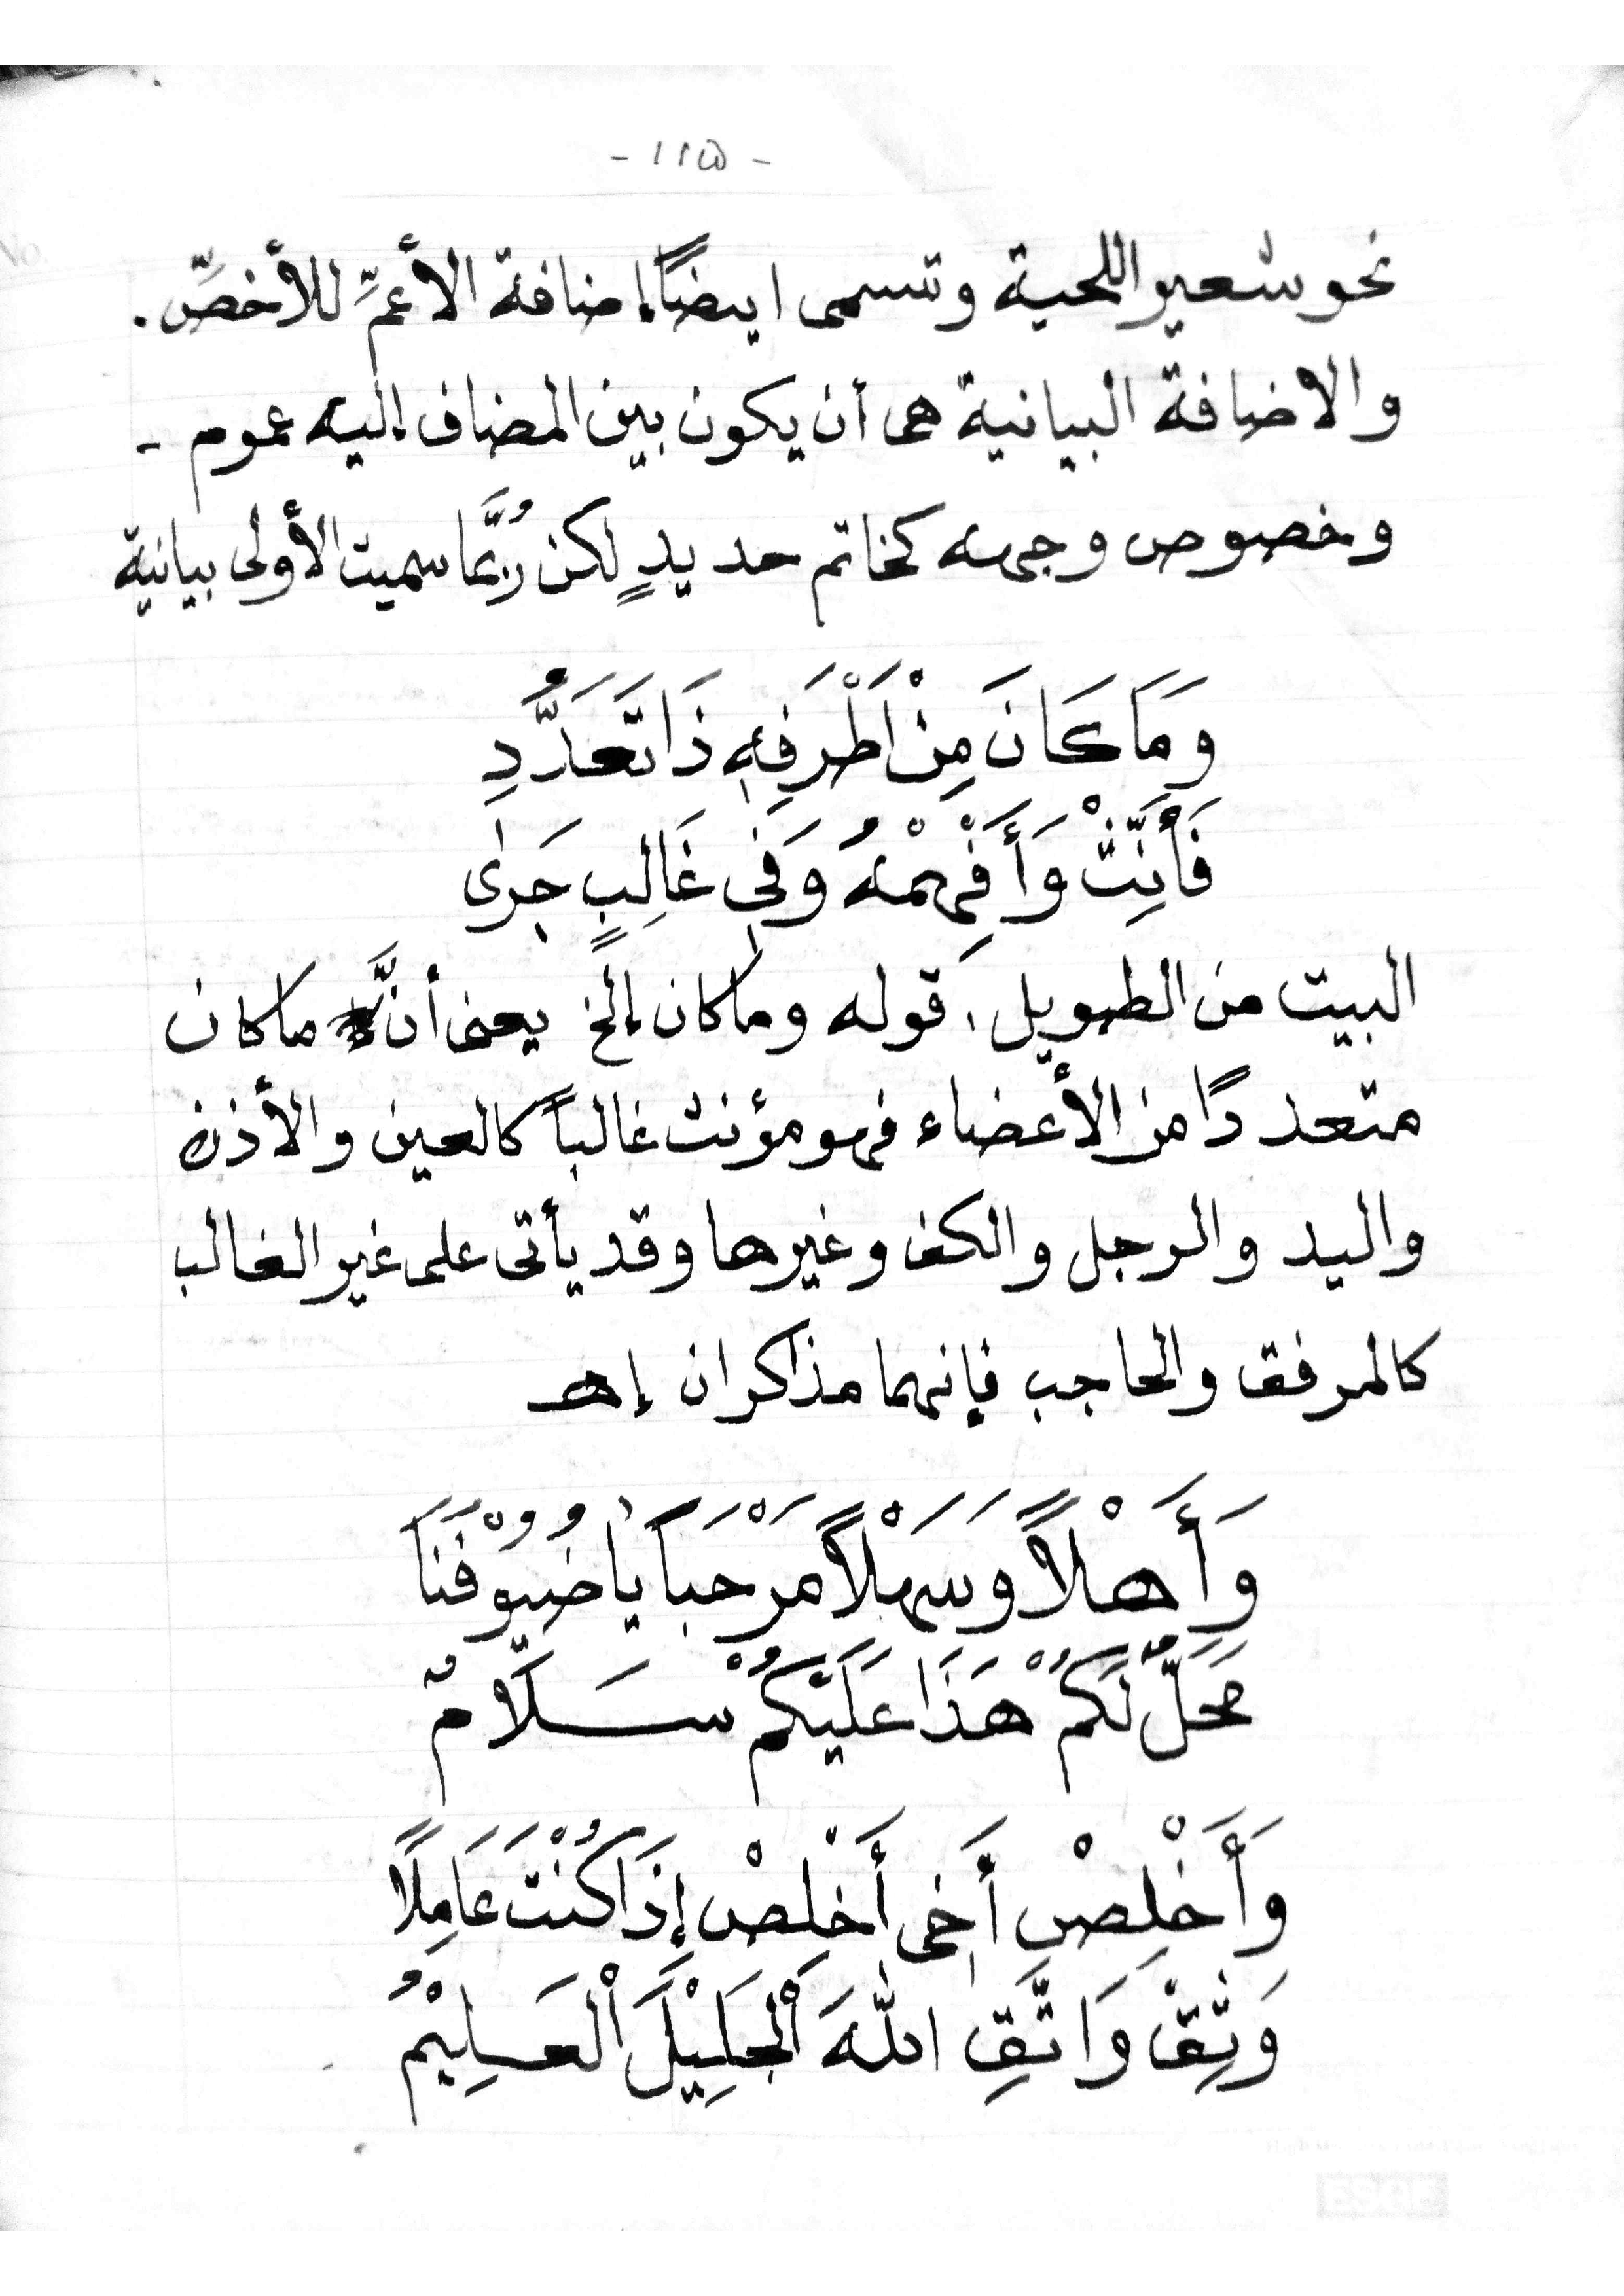 - ١١٥ -
نحو شعير اللحية وتسمى ايضاً إضافة الأعمِّ للأخصِّ.
والاضافة البيانية هى أن يكون بين المضاف إليه عموم -
وخصوص وجهه كخاتم حديدٍ لكن رُبَّما سميت الأولى بيانية
وَمَا كَانَ مِنْ اَطْرَفِهِ ذَا تَعَدُّدِ
فَأَنِّثْ وَأَفْهِمْهُ وَفِي غَالِبٍ جَرٰى
البيت من الطويل، قوله وماكان إلخ يعنى أنَّ ماكان
متعددًا من الأعضاء فهو مؤنث غالباً كالعين والأذن
واليد والرجل والكف وغيرها وقد يأتى على غير الغالب
كالمرفق والحاجب فإنهما مذاكران إهـ
وَأَهْلاً وَسَهْلاً مَرْحَباً يَا ضُيُوْفَنَا
مَحَلٌّ لَكُمْ هَذَا عَلَيْكُمْ سَلَامٌ
وَأَخْلِصْ أَخِى أَخْلِصْ إِذَا كُنْتَ عَامِلًا
وَثِقْ وَاتَّقِ اللّٰهَ الْجَلِيْلَ الْعَلِيْمُ